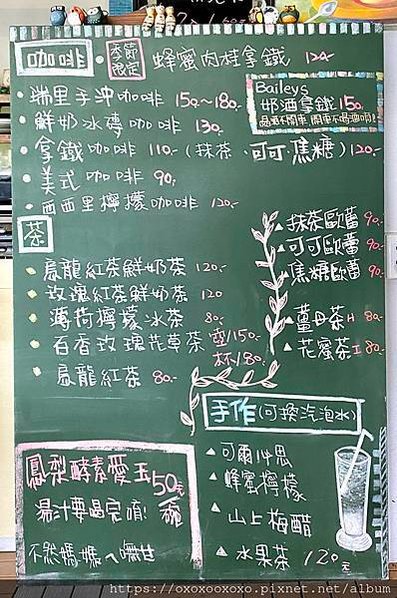 咖啡
季節限定
蜂蜜肉桂拿鐵 120.-
瑞里手沖咖啡 150.~180.
鮮奶冰磚咖啡 130.
拿鐵咖啡 110.-(抹茶、可可、焦糖)120.-
美式咖啡 90.
西西里檸檬咖啡 120.-
Baileys
奶酒拿鐵 150.
品酒不開車 開車不喝酒唷!
茶
烏龍紅茶鮮奶茶 120.-
玫瑰紅茶鮮奶茶 120
薄荷檸檬冰茶 80.-
百香玫瑰花草茶 壺/150.-
杯/80.-
烏龍紅茶 80.-
抹茶歐蕾 90.-
可可歐蕾 90.-
焦糖歐蕾 90.-
薑母茶H 80.-
花蜜茶I 80.-
手作(可換汽泡水)
可爾必思
蜂蜜檸檬
山上梅醋
水果茶
120元
鳳梨酵素愛玉 50元
湯汁要喝完唷!
不然媽媽ㄟ嘸甘
https://oxoxooxoxo.pixnet.net/album